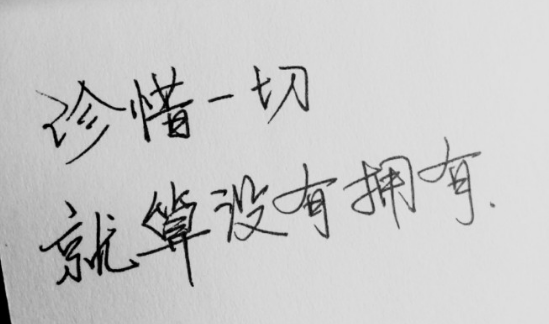 珍惜一切
就算没有拥有.